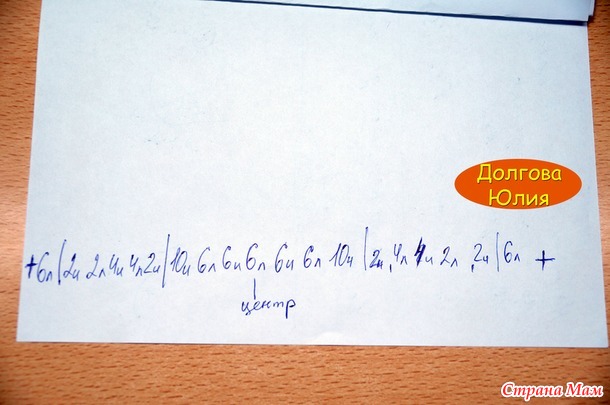 Долгова
Юлия
+ 6л | 2и 2л 4и 4л 2и | 10и 6л 6и 6л 6и 6л 10и | 2и, 4л 4и 2л, 2и | 6л +
центр
Страна Мам